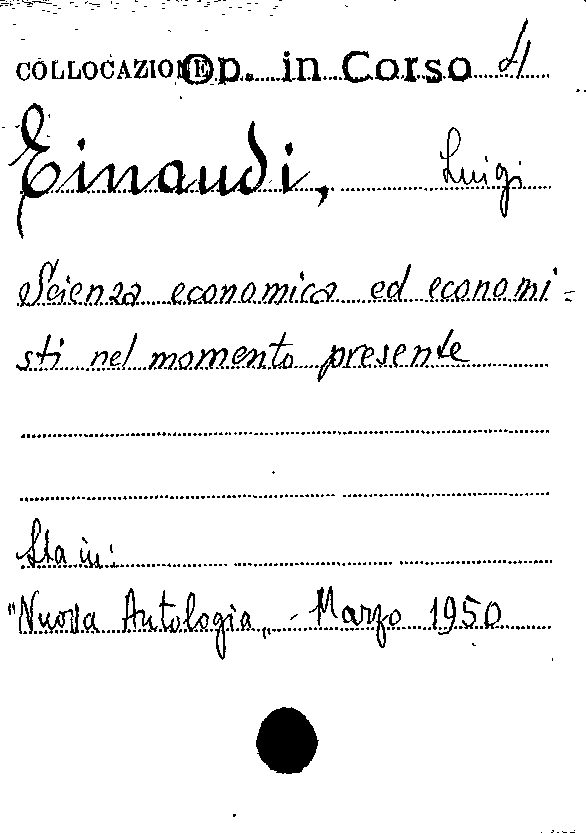 COLLOCAZIONE Op. in Corso
Einaudi, Luigi
Scienza economica ed economi-
sti nel momento presente
Sta in:
"Nuova Antologia„ - Marzo 1950